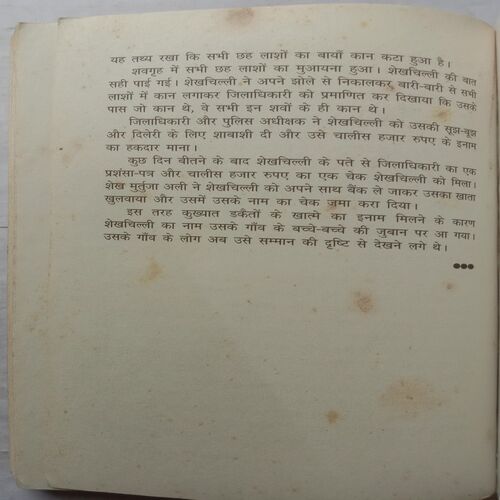 यह तथ्य रखा कि सभी छह लाशों का बायाँ कान कटा हुआ है।
शवगृह में सभी छह लाशों का मुआयना हुआ। शेखचिल्ली की बात
सही पाई गई। शेखचिल्ली ने अपने झोले से निकालकर बारी-बारी से सभी
लाशों में कान लगाकर जिलाधिकारी को प्रमाणित कर दिखाया कि उसके
पास जो कान थे, वे सभी इन शवों के ही कान थे।
जिलाधिकारी और पुलिस अधीक्षक ने शेखचिल्ली को उसकी सूझ-बूझ
और दिलेरी के लिए शाबाशी दी और उसे चालीस हजार रुपए के इनाम
का हकदार माना।
कुछ दिन बीतने के बाद शेखचिल्ली के पते से जिलाधिकारी का एक
प्रशंसा-पत्र और चालीस हजार रुपए का एक चेक शेखचिल्ली को मिला।
शेख मुर्तुजा अली ने शेखचिल्ली को अपने साथ बैंक ले जाकर उसका खाता
खुलवाया और उसमें उसके नाम का चेक जमा करा दिया।
इस तरह कुख्यात डकैतों के खात्मे का इनाम मिलने के कारण
शेखचिल्ली का नाम उसके गाँव के बच्चे-बच्चे की जुबान पर आ गया।
उसके गाँव के लोग अब उसे सम्मान की दृष्टि से देखने लगे थे।